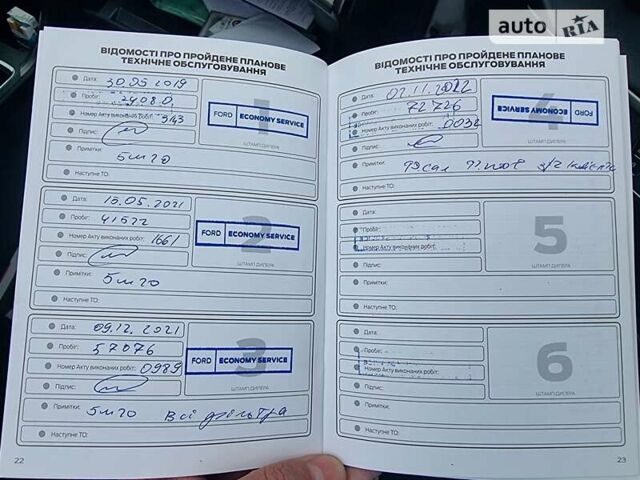 auto RIA
ВІДОМОСТІ ПРО ПРОЙДЕНЕ ПЛАНОВЕ
ТЕХНІЧНЕ ОБСЛУГОВУВАННЯ
Дата: 30.05 2019
Пробіг:
Номер Акту виконаних робіт: 5143
Підпис:
Примітки:
5w20
Наступне ТО:
1
FORD ECONOMY SERVICE
ШТАМП ДИЛЕРА
Дата: 15.05.2021
Пробіг: 41522
Номер Акту виконаних робіт: 1661
Підпис:
Примітки:
5w20
Наступне ТО:
2
FORD ECONOMY SERVICE
ШТАМП ДИЛЕРА
Дата: 09.12.2021
Пробіг: 57076
Номер Акту виконаних робіт: 0989
Підпис:
Примітки: 5w20 Всі фільтра
Наступне ТО:
3
FORD ECONOMY SERVICE
ШТАМП ДИЛЕРА
22
ВІДОМОСТІ ПРО ПРОЙДЕНЕ ПЛАНОВЕ
ТЕХНІЧНЕ ОБСЛУГОВУВАННЯ
Дата: 02.11.2022
Пробіг: 72726
Номер Акту виконаних робіт: 0032
Підпис:
Примітки:
Наступне ТО:
4
FORD ECONOMY SERVICE
ШТАМП ДИЛЕРА
Дата:
Пробіг:
Номер Акту виконаних робіт:
Підпис:
Примітки:
Наступне ТО:
5
ШТАМП ДИЛЕРА
Дата:
Пробіг:
Номер Акту виконаних робіт:
Підпис:
Примітки:
Наступне ТО:
6
ШТАМП ДИЛЕРА
23